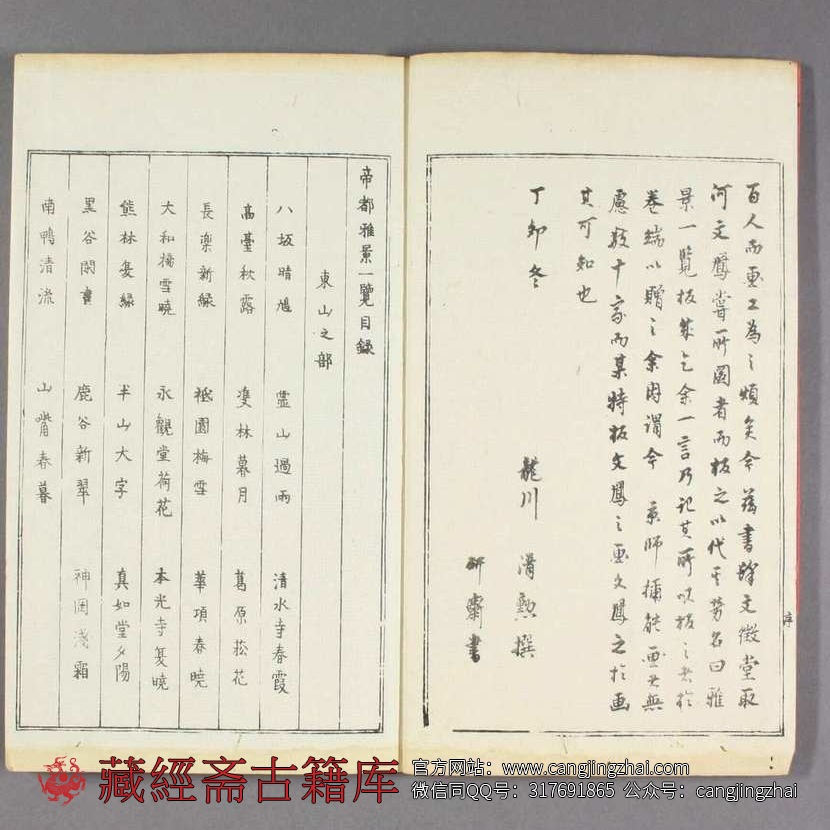 百人而更工為之煩矣今茲書肆文徵堂取
河文鳳嘗所圖者而板之以代其勞名曰雅
景一覽板成乞余一言乃記其所以板之者於
卷端以贈之余因謂今 京師擅能畫者無
慮數十家而某特板文鳳之畫文鳳之於画
其可知也
丁卯冬
龍川 清勲撰
研齋書
序
帝都雅景一覽目録
東山之部
八坂晴鳩 霊山過雨 清水寺春霞
高臺秋露 雙林暮月 葛原菘花
長楽新緑 祇園梅雪 華項春曉
大和橋雪曉 永觀堂荷花 本光寺夏曉
熊林夏緑 半山大字 真如堂夕陽
黒谷閑晝 鹿谷新翠 神岡淺霜
南鴨清流 山觜春暮
藏經斋古籍库
官方网站：www.cangjingzhai.com
微信同QQ号：317691865 公众号：cangjingzhai